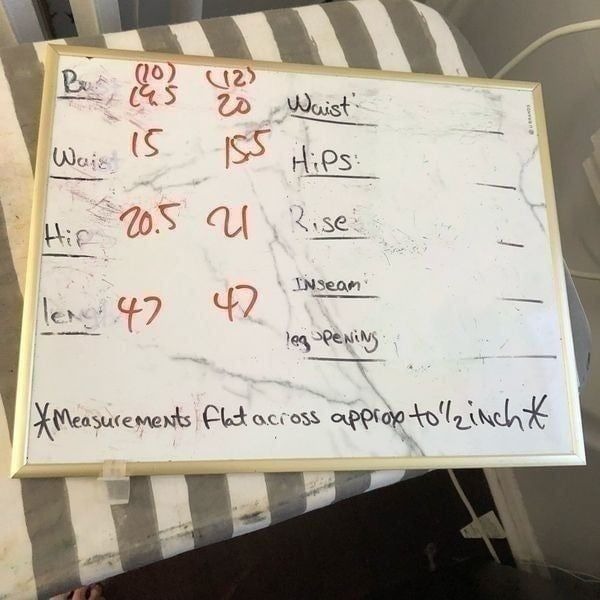 (10) (12)
19.5 20 Waist:
Waist 15 15.5 Hips:
Hip 20.5 21 Rise
Inseam:
leng 47 47
leg opening
*Measurements flat across approx to 1/2 inch*